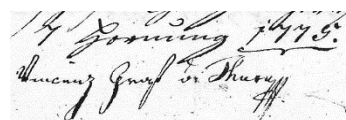 17 Hornung 1775.
Vincenz Graf v: Thurn